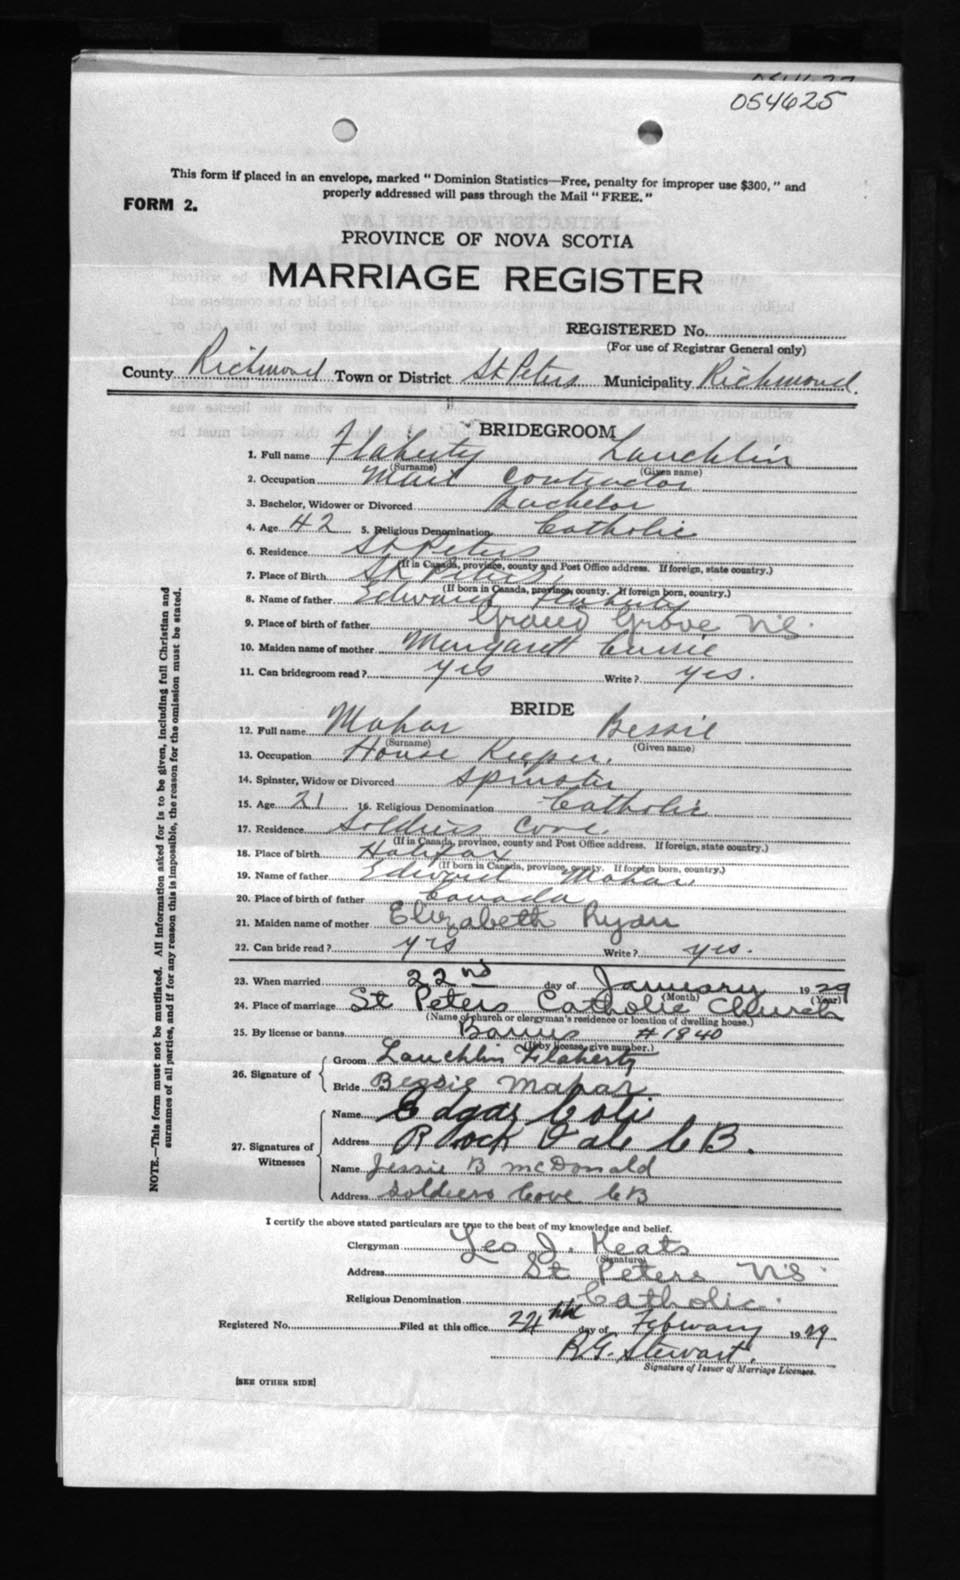 054625
This form if placed in an envelope, marked "Dominion Statistics—Free, penalty for improper use $300," and
properly addressed will pass through the Mail "FREE."
FORM 2.
PROVINCE OF NOVA SCOTIA
MARRIAGE REGISTER
REGISTERED No.
(For use of Registrar General only)
County Richmond Town or District St Peters Municipality Richmond.
BRIDEGROOM
1. Full name Flaherty Lauchlin
(Surname) (Given name)
2. Occupation Mail Contractor
3. Bachelor, Widower or Divorced Bachelor
4. Age 42 5. Religious Denomination Catholic
6. Residence St Peters
(If in Canada, province, county and Post Office address. If foreign, state country.)
7. Place of Birth St Peters
(If born in Canada, province, county. If foreign born, country.)
8. Name of father Edward Flaherty
9. Place of birth of father Grove N.S.
10. Maiden name of mother Margaret Currie
11. Can bridegroom read? yes Write? yes.
BRIDE
12. Full name Mahar Bessie
(Surname) (Given name)
13. Occupation House Keeper.
14. Spinster, Widow or Divorced Spinster
15. Age 21 16. Religious Denomination Catholic
17. Residence Soldiers Cove.
(If in Canada, province, county and Post Office address. If foreign, state country.)
18. Place of birth Halifax
(If born in Canada, province, county. If foreign born, country.)
19. Name of father Edward Mahar.
20. Place of birth of father Canada
21. Maiden name of mother Elizabeth Ryan
22. Can bride read? yes Write? yes.
23. When married 22nd day of January 1929
(Month) (Year)
24. Place of marriage St Peters Catholic Church
(Name of church or clergyman's residence or location of dwelling house.)
25. By license or banns Banns # 1840
(If by license, give number.)
26. Signature of
Groom Lauchlin Flaherty
Bride Bessie Mahar
27. Signatures of Witnesses
Name Edgar
Address Rock Vale C B.
Name Jessie B McDonald
Address Soldiers Cove C B
I certify the above stated particulars are true to the best of my knowledge and belief.
Clergyman Leo J. Keats
(Signature)
Address St Peters N.S.
Religious Denomination Catholic.
Registered No. Filed at this office 24th day of February 1929
R.G. Stewart.
Signature of Issuer of Marriage Licenses.
[SEE OTHER SIDE]
NOTE.—This form must not be mutilated. All information asked for is to be given, including full Christian and
surnames of all parties, and if for any reason this is impossible, the reason for the omission must be stated.